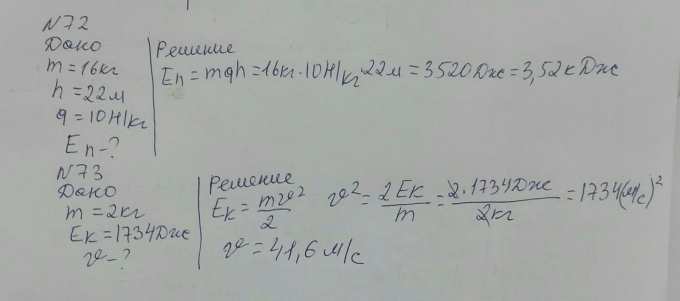 N72
Дано
m = 16кг
h = 22м
g = 10Н/кг
Eп - ?
Решение
Eп = mgh = 16кг · 10Н/кг · 22м = 3520Дж = 3,52кДж
N73
Дано
m = 2кг
Eк = 1734Дж
v - ?
Решение
Eк = mv²/2 v² = 2Eк/m = 2·1734Дж/2кг = 1734(м/с)²
v = 41,6м/с